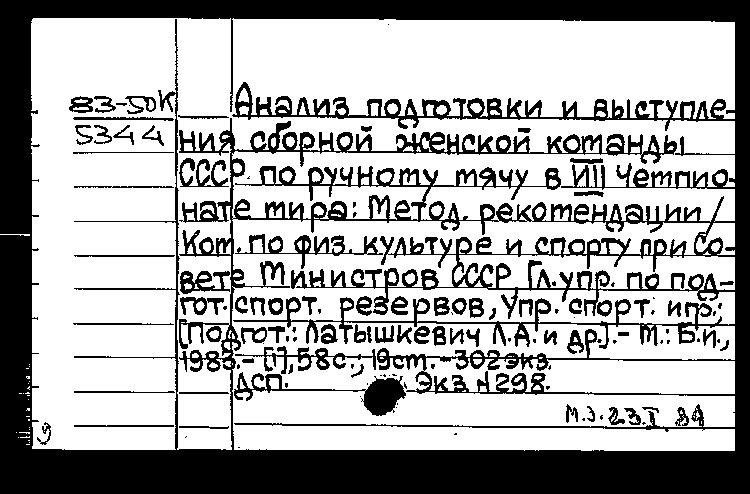 83-50К
5344
Анализ подготовки и выступле-
ния сборной женской команды
СССР по ручному мячу в VIII Чемпио-
нате мира: Метод. рекомендации /
Ком. по физ. культуре и спорту при Со-
вете Министров СССР, Гл. упр. по под-
гот. спорт. резервов, Упр. спорт. игр.;
[Подгот.: Латышкевич Л.А. и др.]. - М.: Б.и.,
1983. - [1], 58 с.; 19 см. - 302 экз.
ДСП. Экз. № 298.
М.Э. 23.I 84
9